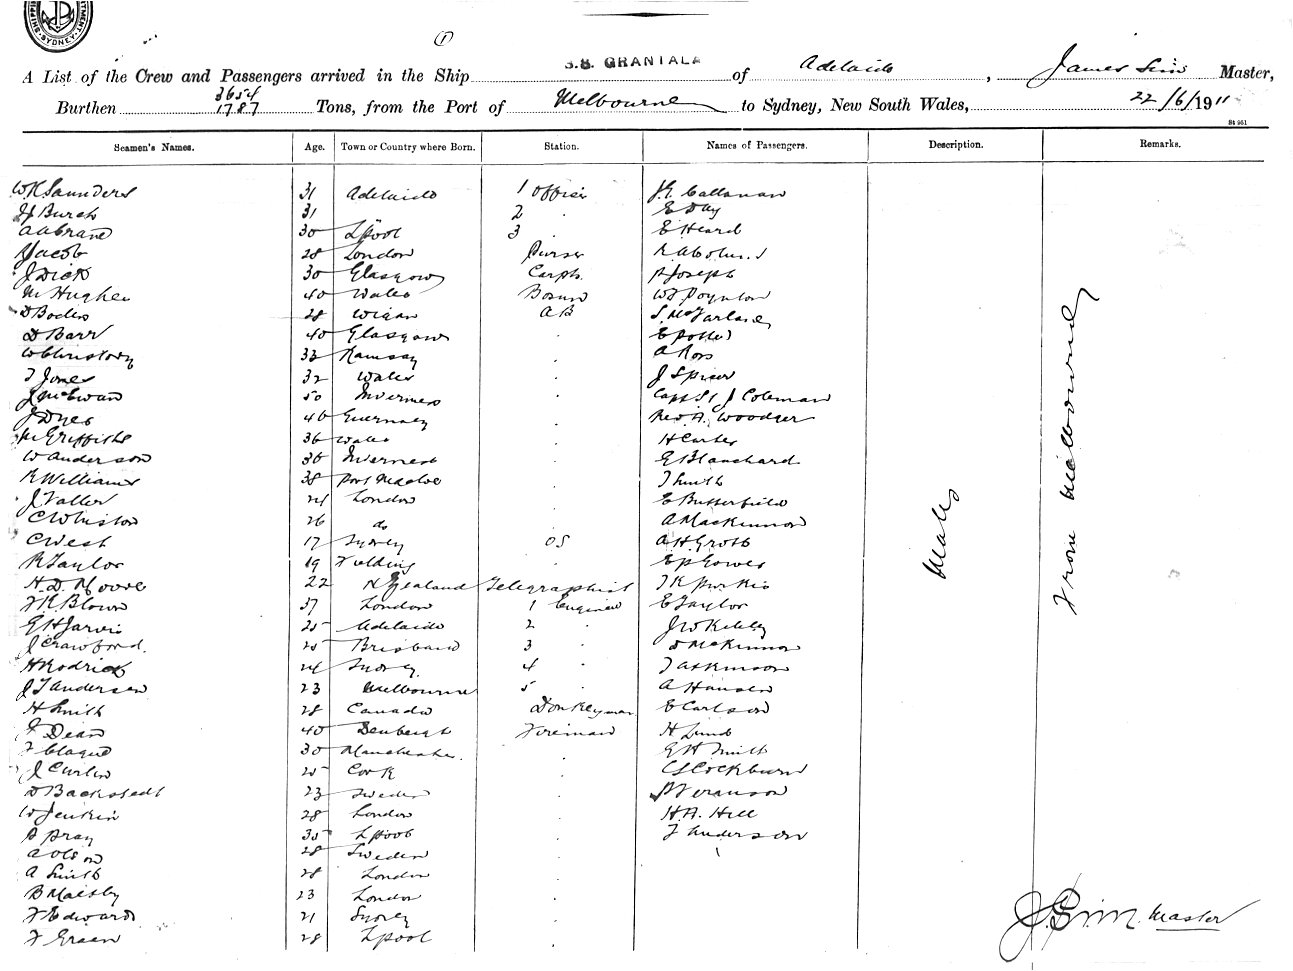 (1)
A List of the Crew and Passengers arrived in the Ship S.S. GRANTALA of Adelaide, James Sim Master,
Burthen 3654 1787 Tons, from the Port of Melbourne to Sydney, New South Wales, 22/6/1911
St 961
Seamen's Names. Age. Town or Country where Born. Station. Names of Passengers. Description. Remarks.
W R Saunders 31 Adelaide 1 Officer J. Callanan
J Burch 31 2 . E Day
30 L'pool 3 . E Heard
Jacob 28 London Purser R
J Dick 30 Glasgow Carptr. Joseph
M Hughes 40 Wales Bosun W Poynton
D 28 Wigan A B S. McFarland
D Barr 40 Glasgow . E Potter
W Christory 33 Ramsay . A Ross
T Jones 32 Wales . J Spicer
J McEwan 50 Inverness . Capt J Coleman
J Dyer 40 Guernsey . Rev. A. Woodger
M Griffiths 36 Wales . H Carter
W Anderson 36 Inverness . E Blanchard
R Williams 38 Port . T Smith
J 24 London . E Butterfield
C Whiston 26 do . A MacKinnon
C West 17 Sydney O S A H Grobb
R Taylor 19 Fielding . E P Gower
H. D. Moore 22 N Zealand Telegraphist T K Purkis
F K Blown 37 London 1 Engineer E Taylor
E H Jarvis 25 Adelaide 2 . J W
J Crawford. 25 Brisbane 3 . D McKinnon
H Rodrick 24 Sydney 4 . T Atkinson
J T Andersen 23 Melbourne 5 . A Hansen
H Smith 28 Canada Donkeyman E Carlson
F Dean 40 Denbeigh Fireman H Lund
F Clague 30 Manchester . E H Smith
J Curlew 25 Cork . C S Cockburn
D Backstedt 23 Sweden . P Feranson
W Jenkin 28 London . H. A. Hill
P Pray 35 L'pool . F Anderson
A Olson 28 Sweden .
A Smith 28 London .
B Maltby 23 London .
F Edwards 21 Sydney .
F Green 28 L'pool .
Males
From Melbourne
J. Sim. Master